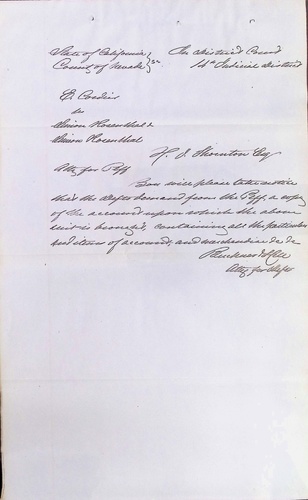 State of California } ss In District Court
County of Nevada 14th Judicial District
E. Cordier
vs
Simon Rosenthal &
Simon Rosenthal
H. I. Thornton Esq
Atty for Plff
You will please take notice
that the defts demand from the Plff, a copy
of the account upon which the above
suit is brought, containing all the particulars
and items of account, and merchandise &c &c
Atty for Defts